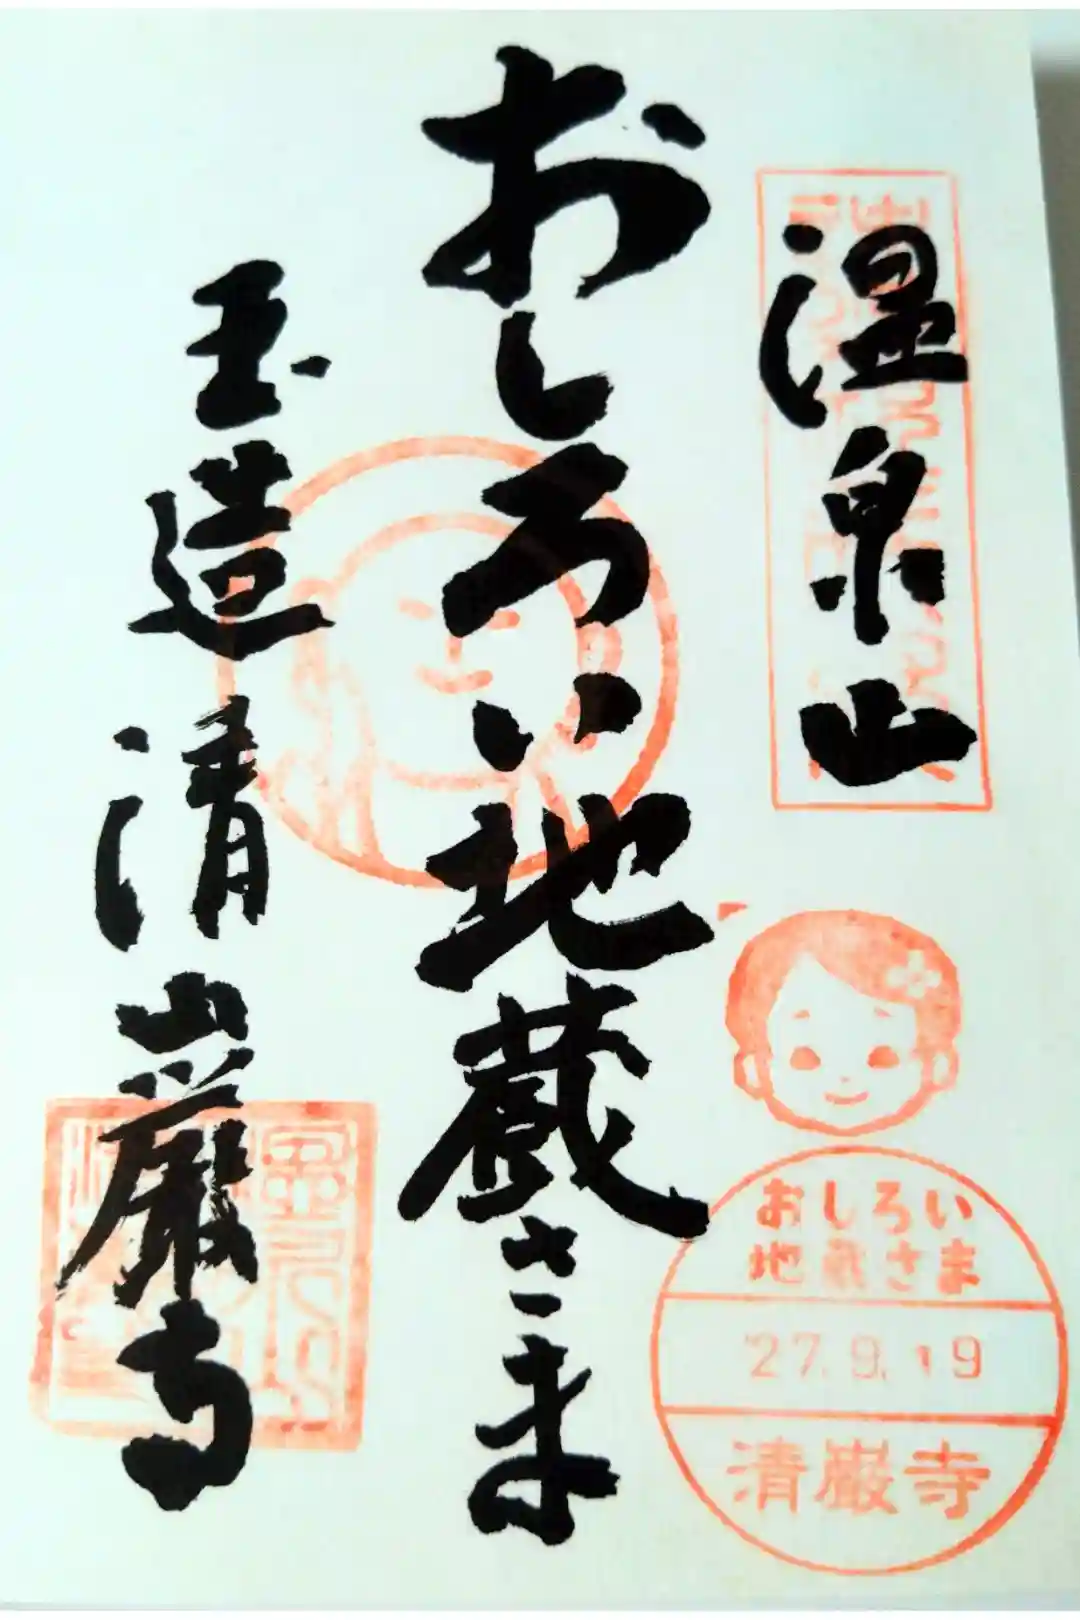 温泉山
おしろい地蔵さま
玉造清巖寺
おしろい
地蔵さま
27.9.19
清巌寺